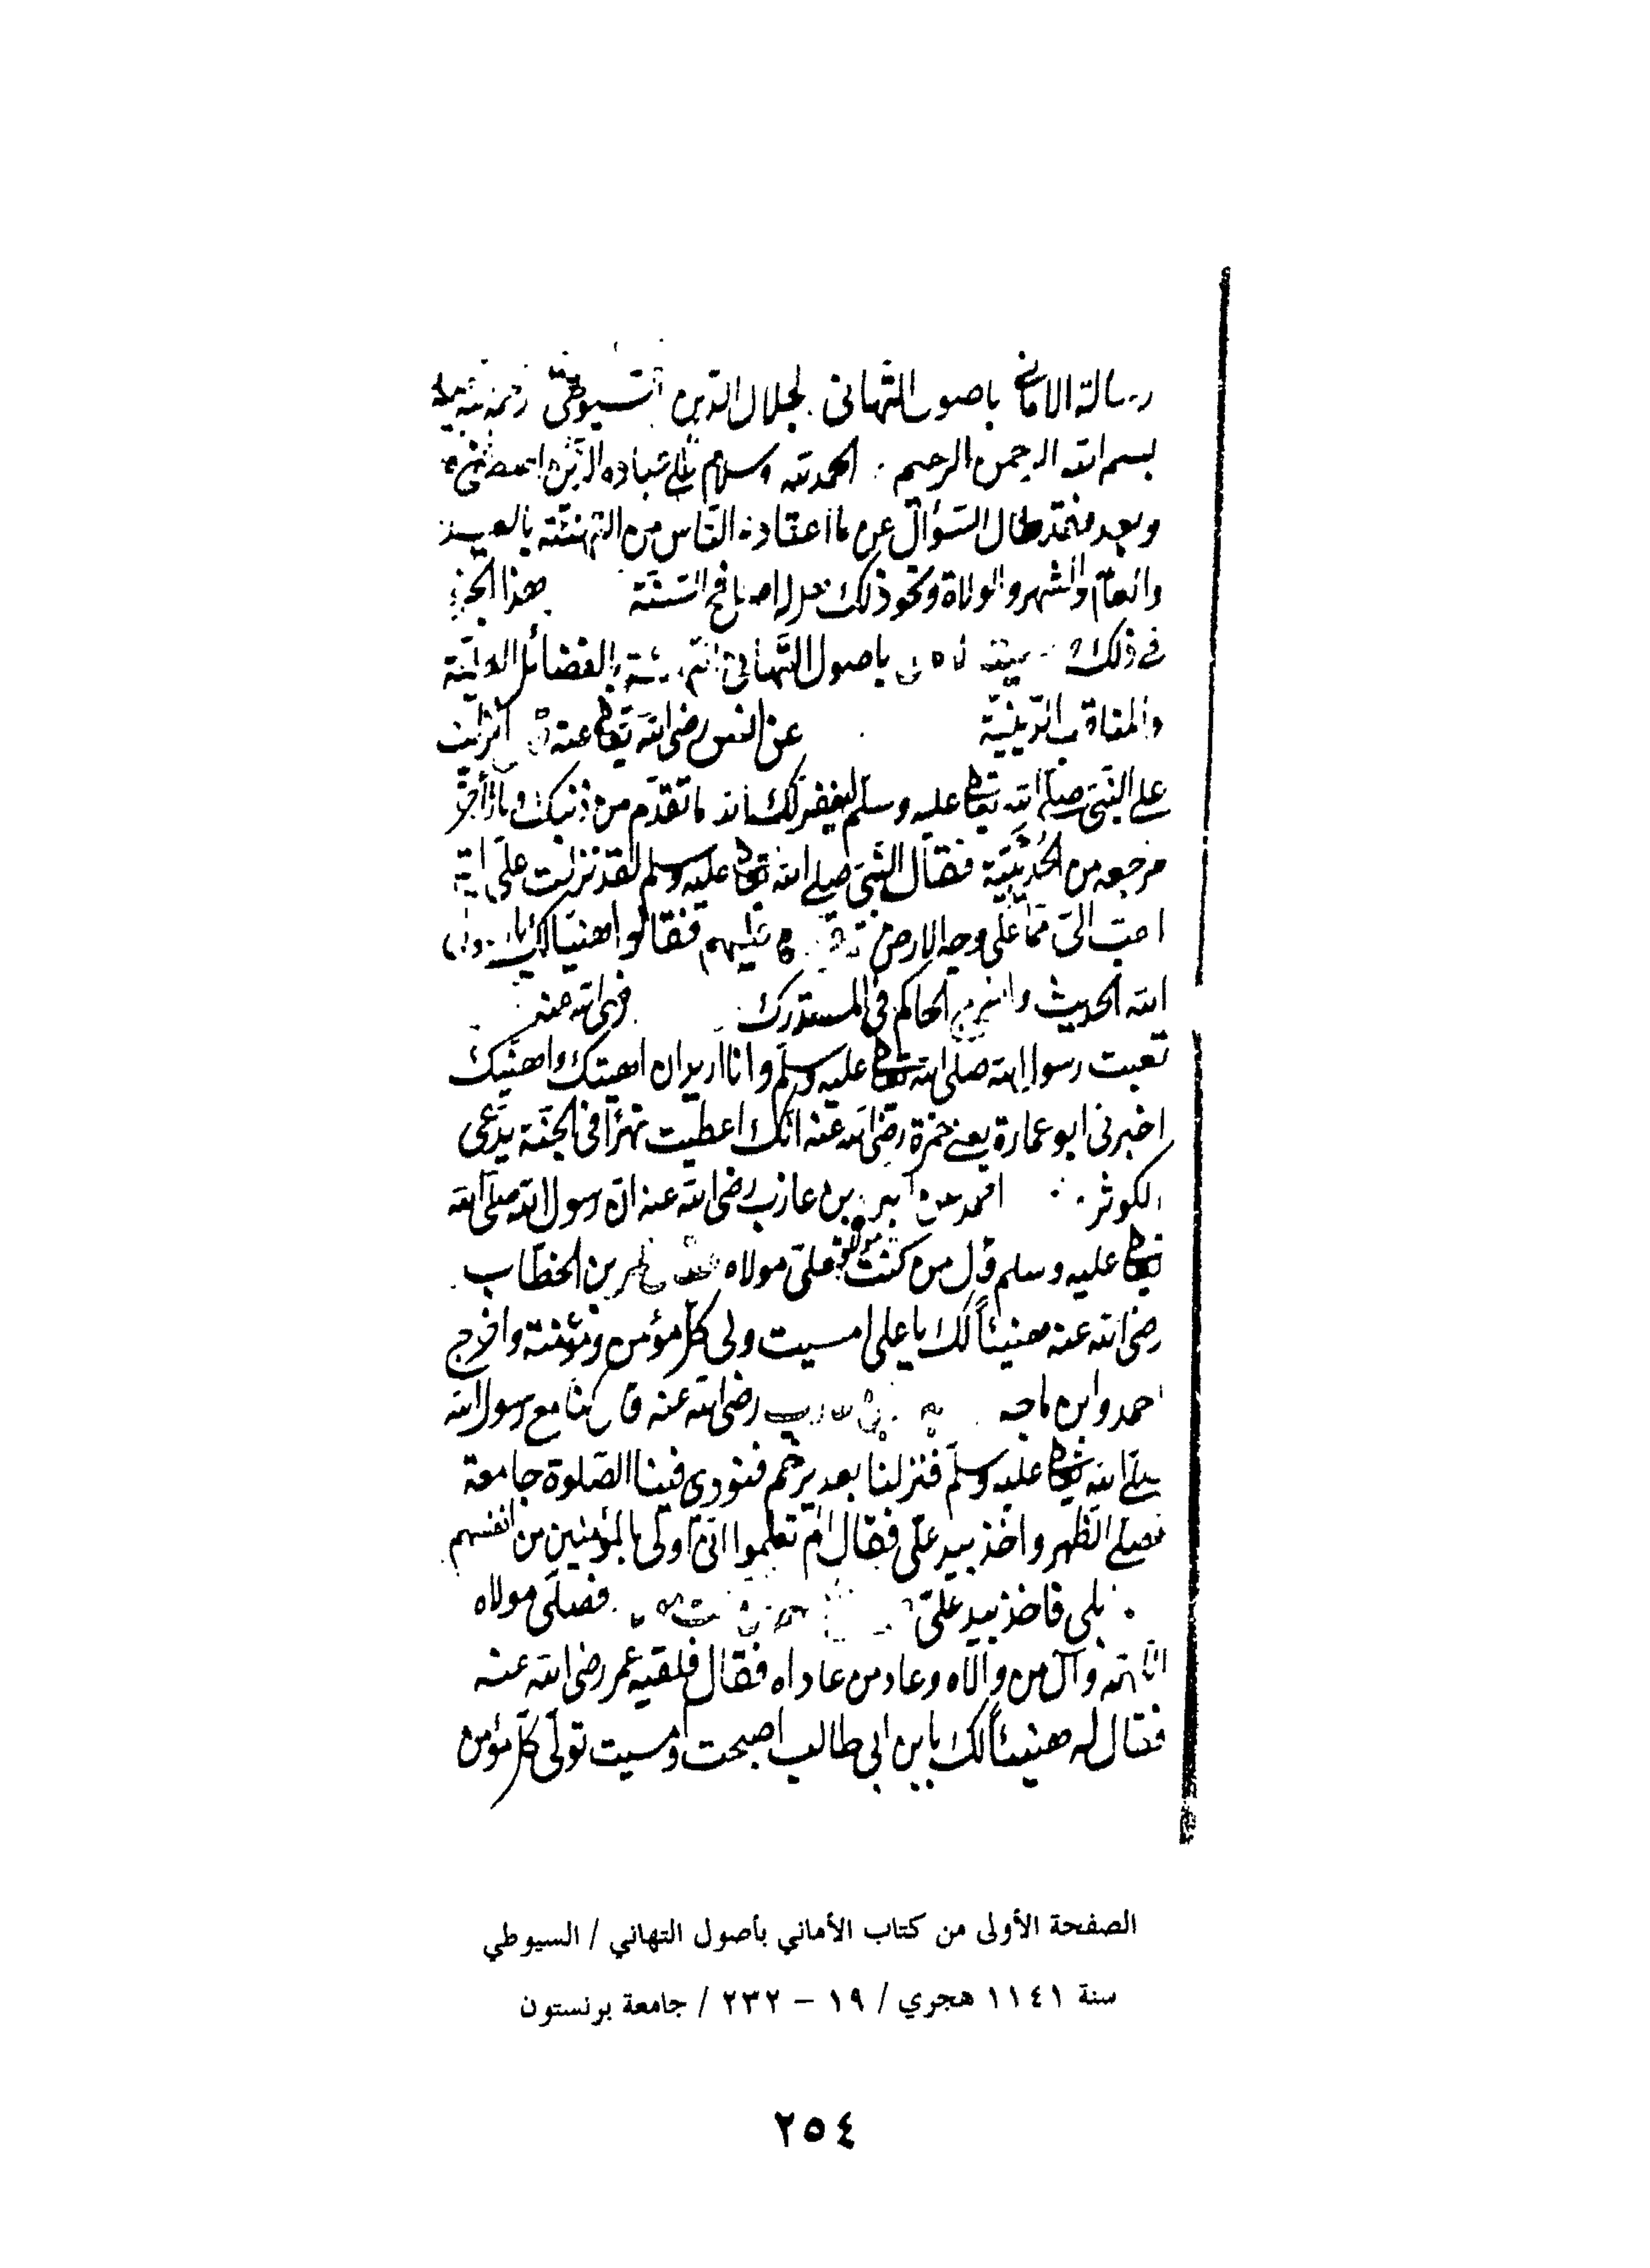 رسالة الاماني باصول التهاني لجلال الدين السيوطي رحمه الله
بسم الله الرحمن الرحيم الحمد لله وسلام على عباده الذين اصطفى
وبعد فقد طال السؤال عن ما اعتاده الناس من التهنئة بالعيد
والعام والشهر والولاة ونحو ذلك هل له اصل في السنة هذا الجزء
في ذلك باصول التهاني بالفضائل العلية
والمناقب الدينية عن انس رضي الله تعالى عنه انزلت
على النبي صلى الله تعالى عليه وسلم ليغفر لك الله ما تقدم من ذنبك وما تأخر
مرجعه من الحديبية فقال النبي صلى الله تعالى عليه وسلم لقد نزلت على اية
احب الى مما على وجه الارض عليهم فقالوا هنيئا لك يا رسول
الله الحديث واخرج الحاكم في المستدرك رضى الله عنه
تعبت رسول الله صلى الله تعالى عليه وسلم وانا اريد ان اهيتك واهنيك
اخبرني ابو عمارة يعني حمزة رضى الله عنه انك اعطيت نهرا في الجنة يدعى
الكوثر احمد عن البراء بن عازب رضى الله عنه ان رسول الله صلى الله
تعالى عليه وسلم قال من كنت مولاه فعلي مولاه عمر بن الخطاب
رضى الله عنه هنيئاً لك يا على امسيت ولى كل مؤمن ومؤمنة واخرج
احمد وابن ماجه رضى الله عنه قال كنا مع رسول الله
صلى الله تعالى عليه وسلم فنزلنا بعدير خم فنودى فينا الصلوة جامعة
فصلى الظهر واخذ بيد على فقال الم تعلموا انى اولى بالمؤمنين من انفسهم
بلى فاخذ بيد على فعلى مولاه
اللهم وال من والاه وعاد من عاداه فقال فلقيه عمر رضى الله عنه
فقال له هنيئاً لك يا بن ابي طالب اصبحت وامسيت تولى كل مؤمن
الصفحة الأولى من كتاب الأماني بأصول التهاني / السيوطي
سنة ١١٤١ هجري / ١٩ – ٢٣٢ / جامعة برنستون
٢٥٤